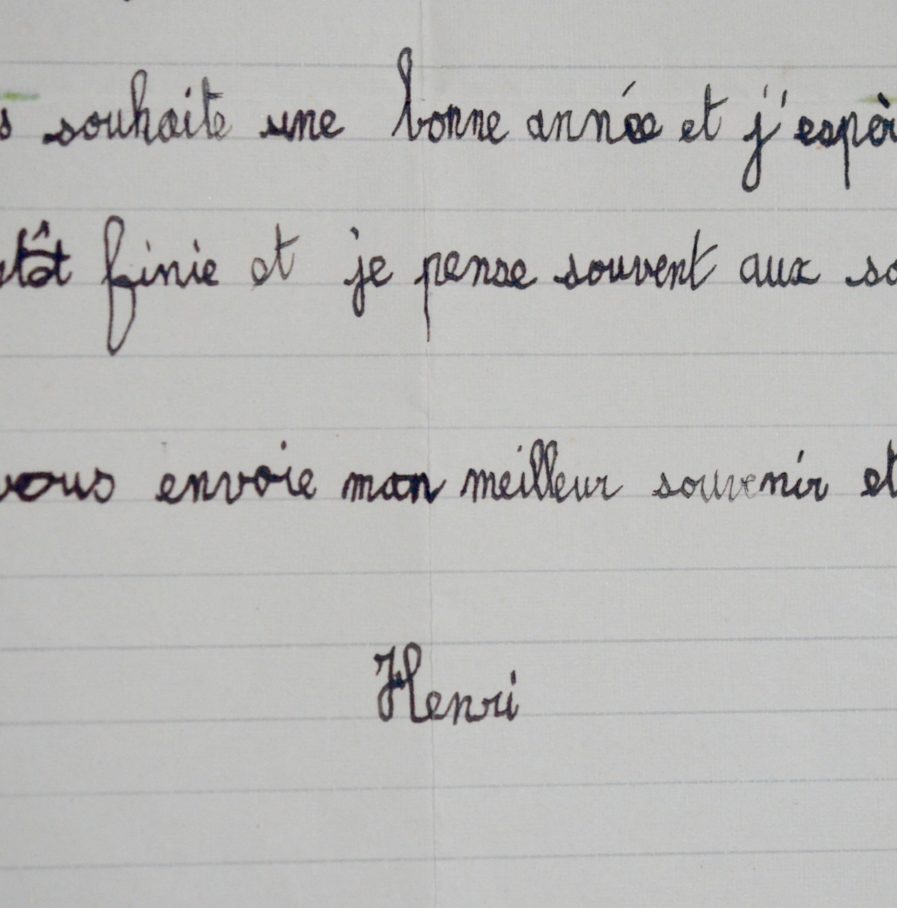 s souhaite une bonne année et j'espèr
tôt finie et je pense souvent aux so
vous envoie mon meilleur souvenir et
Henri